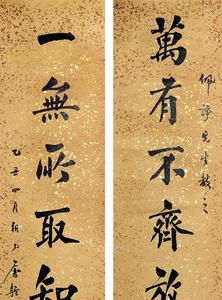 萬有不齊
佩諍先生教之
一無所取
乙丑四月朔